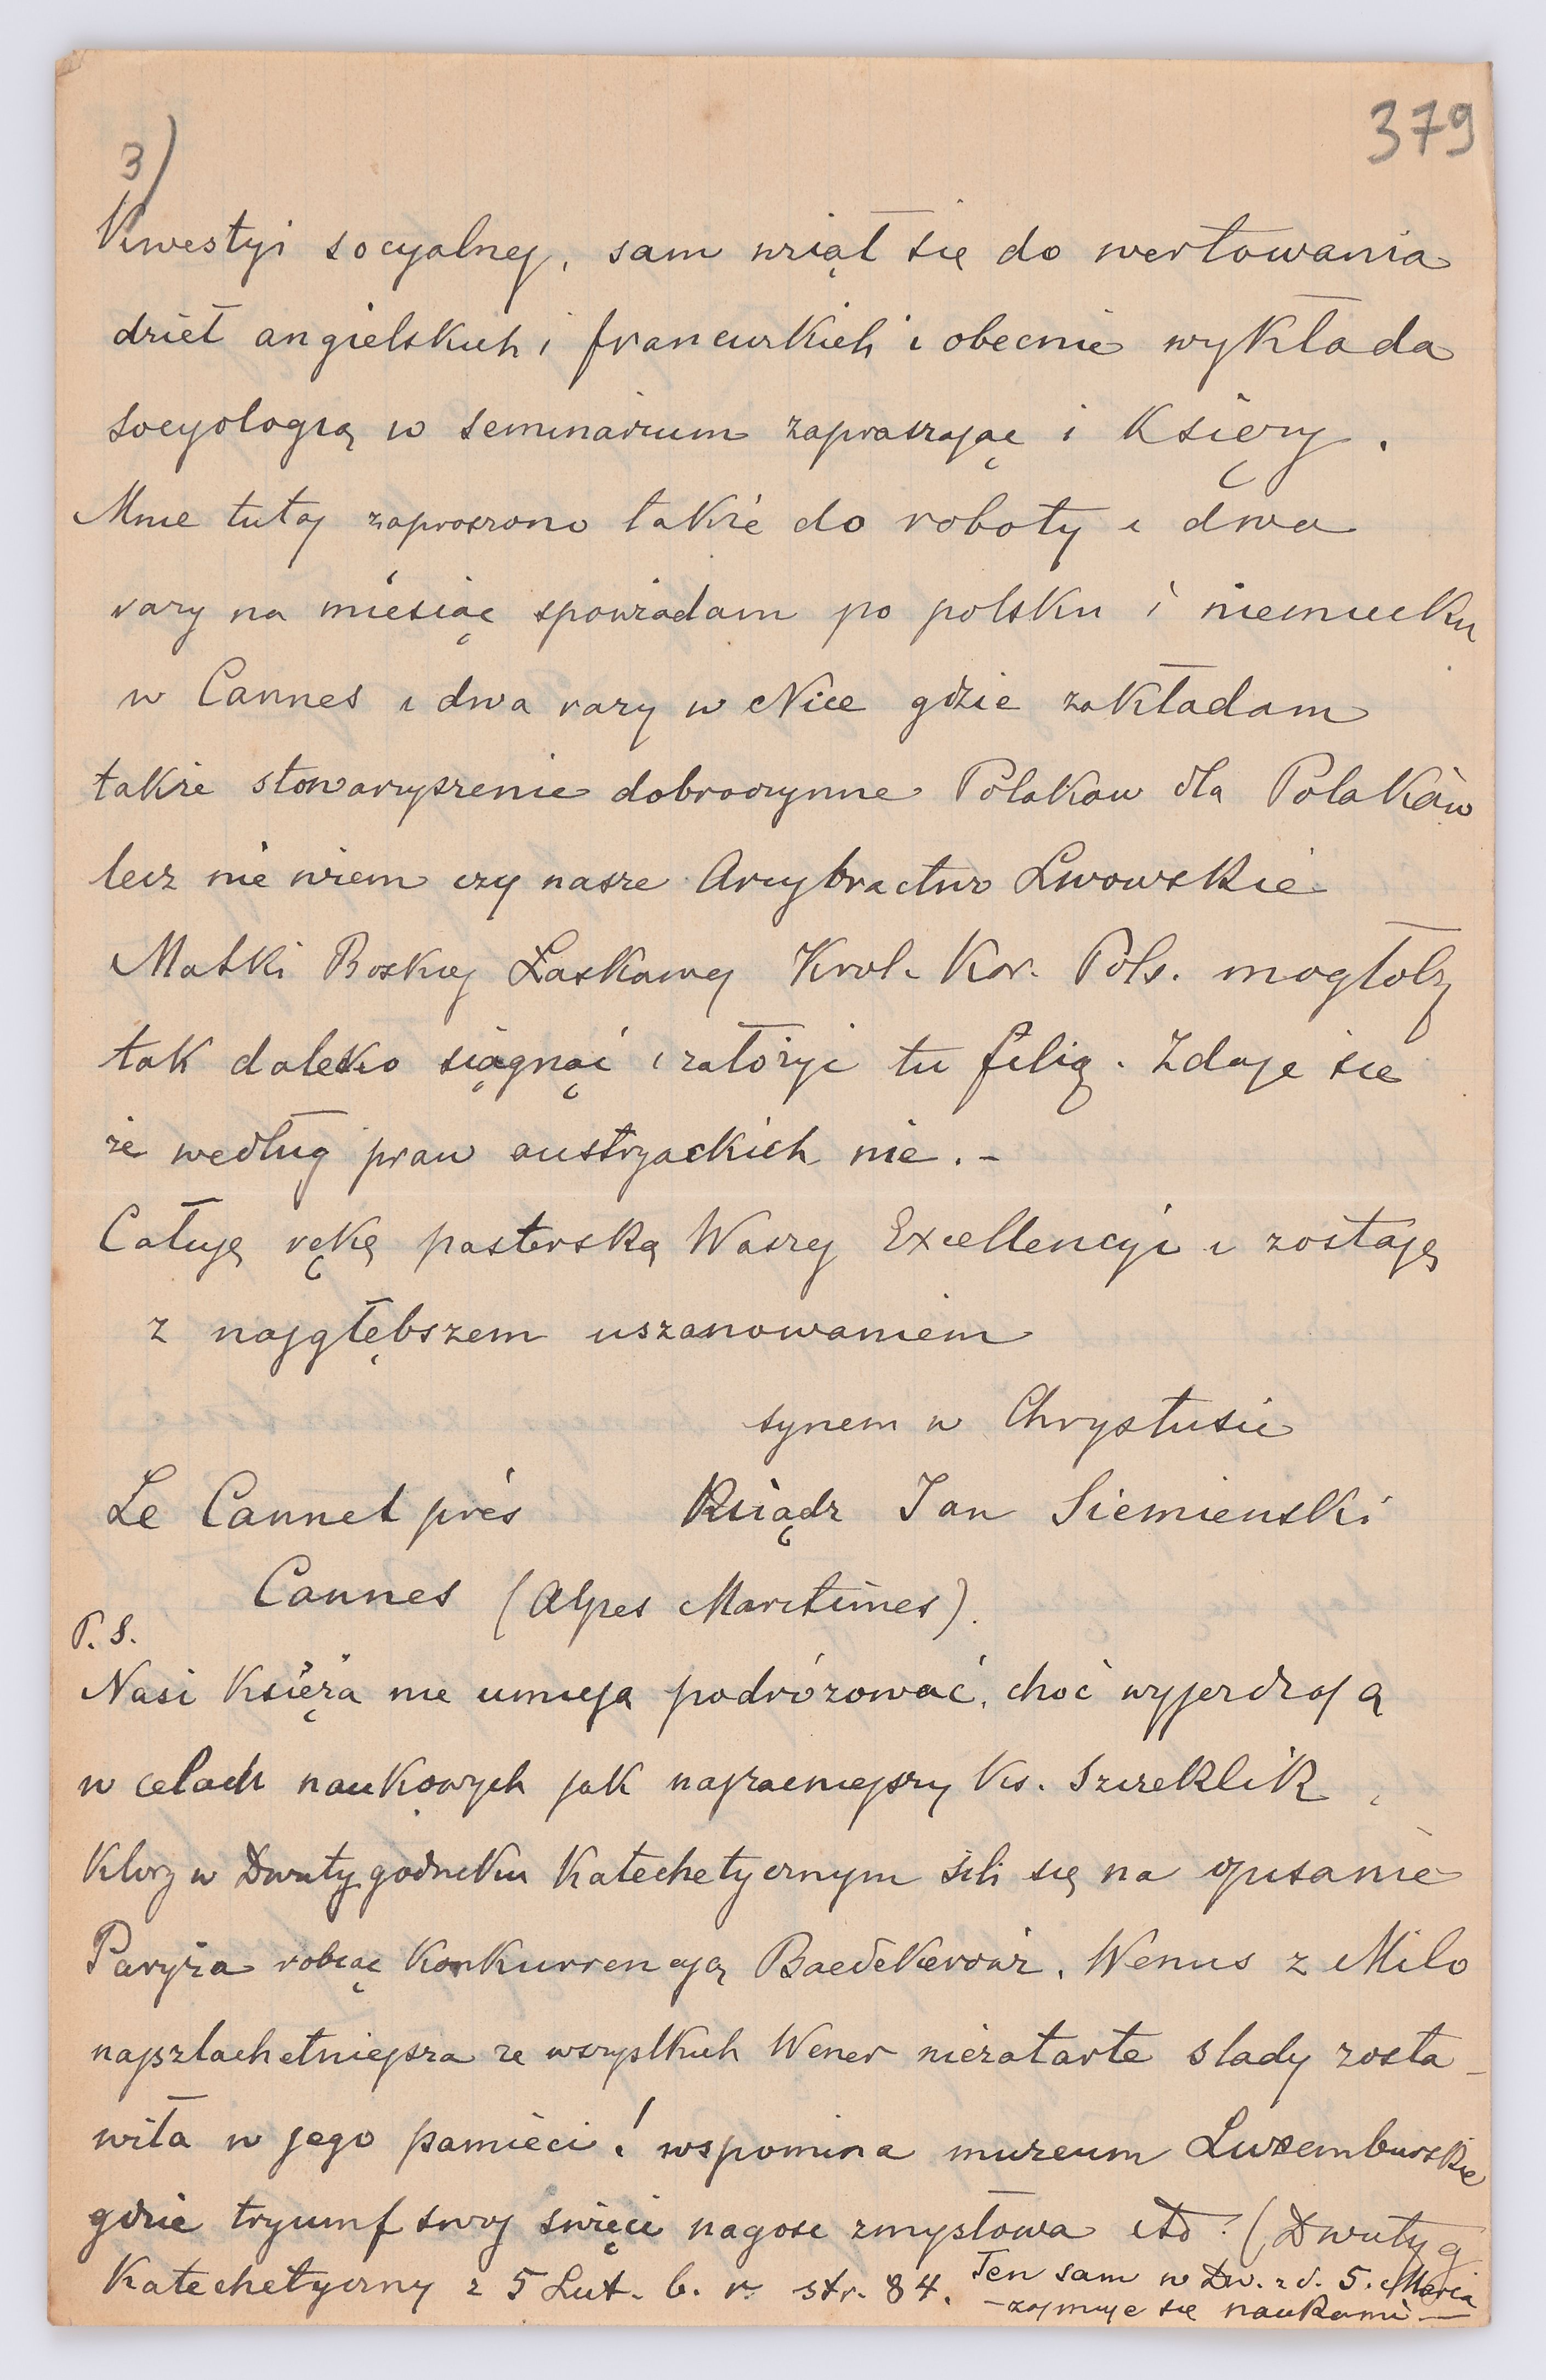 379
3)
Kwestyi socyalnej, sam wziął się do wertowania
dzieł angielskich i francuzkich i obecnie wykłada
socyologią w seminarium zapraszając i Księży.
Mnie tutaj zaproszono także do roboty i dwa
razy na miesiąc spowiadam po polsku i niemiecku
w Cannes i dwa razy w Nice gdzie zakładam
także stowarzyszenie dobroczynne Polakow dla Polaków
lecz nie wiem czy nasze Arcybractwo Lwowskie
Matki Boskiej Łaskawej Krol. Kor. Pols. mogłoby
tak daleko siągnąć i założyć tu filią. Zdaje sie
że według praw austryackich nie. -
Całuję rękę pasterską Waszej Excellencyi i zostaję
z najgłębszem uszanowaniem
synem w Chrystusie
Le Cannet près Ksiądz Jan Siemienski
Cannes (Alpes Maritimes).
P. S.
Nasi Księża nie umieją podróżować, choć wyjezdzają
w celach naukowych jak najzacniejszy Ks. Szczeklik,
Ktory w Dwutygodniku Katechetycznym sili się na opisanie
Paryża robiąc Konkurrencyą Baedekerowi. Wenus z Milo
najszlachetniejsza ze wszystkich Wener niezatarte slady zosta-
wiła w jego pamieci! wspomina muzeum Luxemburskie
gdzie tryumf swoj święci nagosc zmysłowa itd! (Dwutyg
Katechetyczny z 5 Lut. b. r. str. 84. Ten sam w Dw. z d. 5. Marca
- zajmuje się naukami -